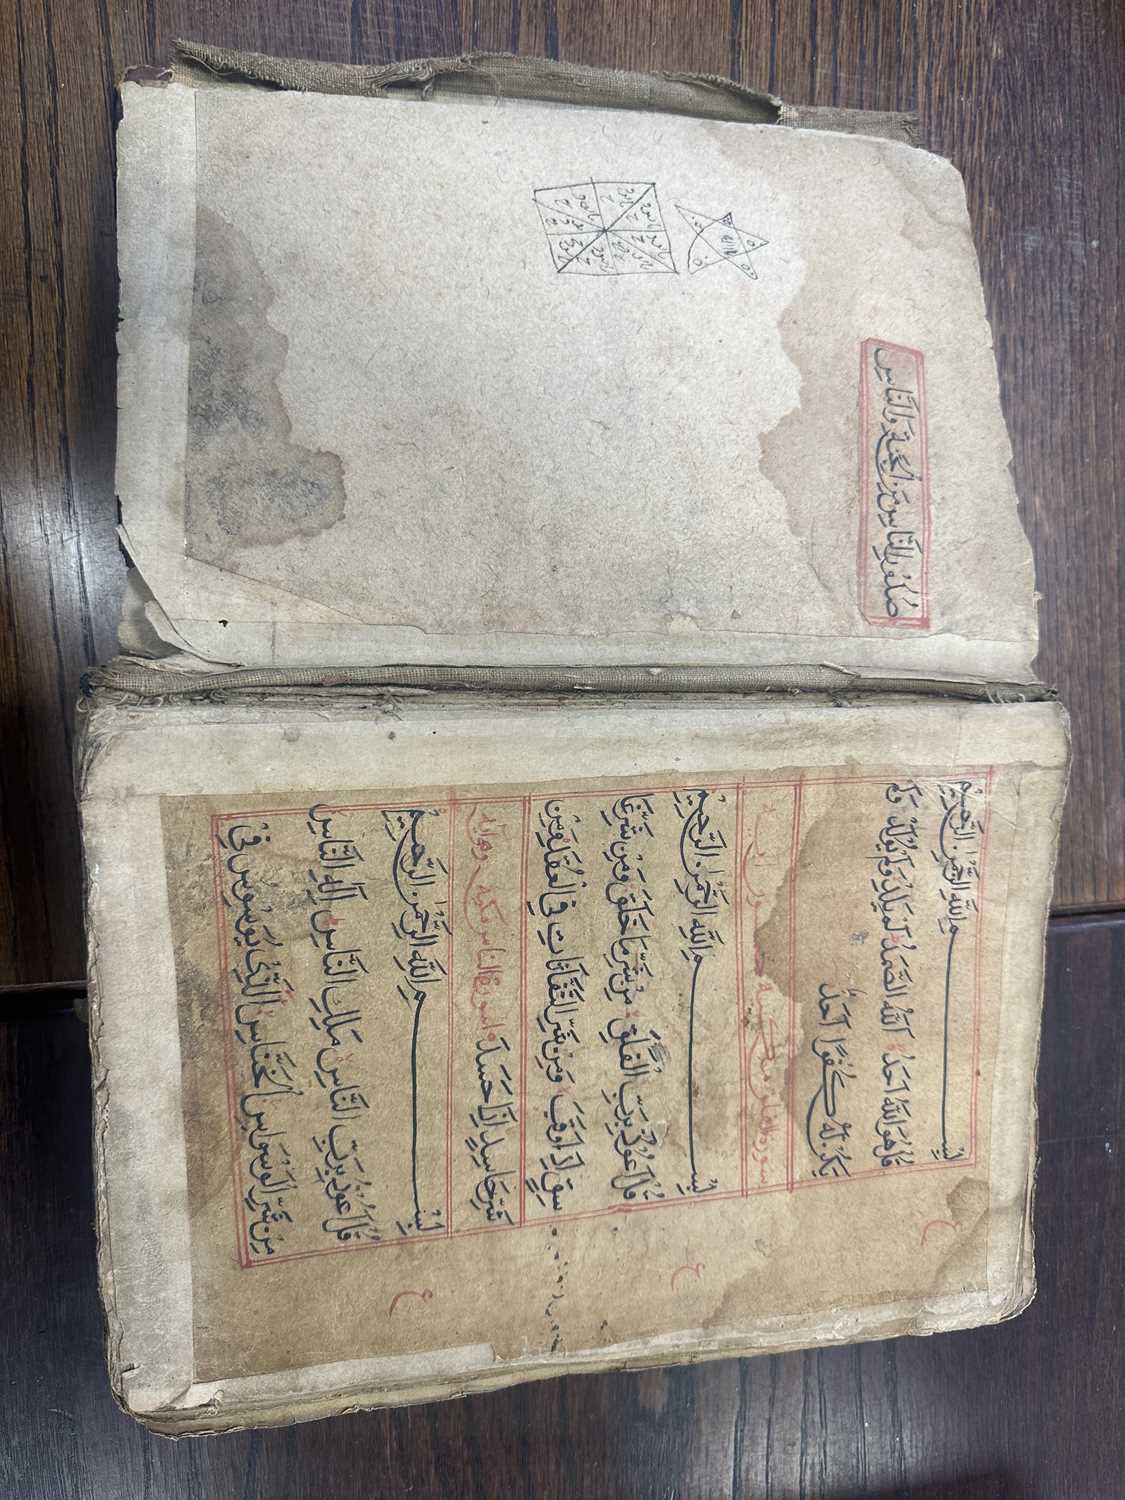 بِسْــــمِ اللّٰهِ الرَّحْمٰنِ الرَّحِيْمِ
قُلْ هُوَ اللّٰهُ اَحَدٌ اَللّٰهُ الصَّمَدُ لَمْ يَلِدْ وَلَمْ يُوْلَدْ وَلَمْ
يَكُنْ لَهُ كُفُوًا اَحَدٌ
سورة الفلق مكية
بِسْــــمِ اللّٰهِ الرَّحْمٰنِ الرَّحِيْمِ
قُلْ اَعُوْذُ بِرَبِّ الْفَلَقِ مِنْ شَرِّ مَا خَلَقَ وَمِنْ شَرِّ غَا
سِقٍ اِذَا وَقَبَ وَمِنْ شَرِّ النَّفَّاثَاتِ فِي الْعُقَدِ وَمِنْ
شَرِّ حَاسِدٍ اِذَا حَسَدَ الناس مكية
بِسْــــمِ اللّٰهِ الرَّحْمٰنِ الرَّحِيْمِ
قُلْ اَعُوْذُ بِرَبِّ النَّاسِ مَلِكِ النَّاسِ اِلٰهِ النَّاسِ
مِنْ شَرِّ الْوَسْوَاسِ الْخَنَّاسِ الَّذِيْ يُوَسْوِسُ فِيْ
ع
ع
ع
صُدُوْرِ النَّاسِ مِنَ الْجِنَّةِ وَالنَّاسِ